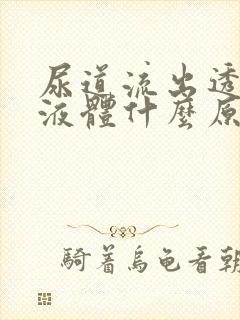 尿道流出透
液體什麼原
騎着烏龜看朝